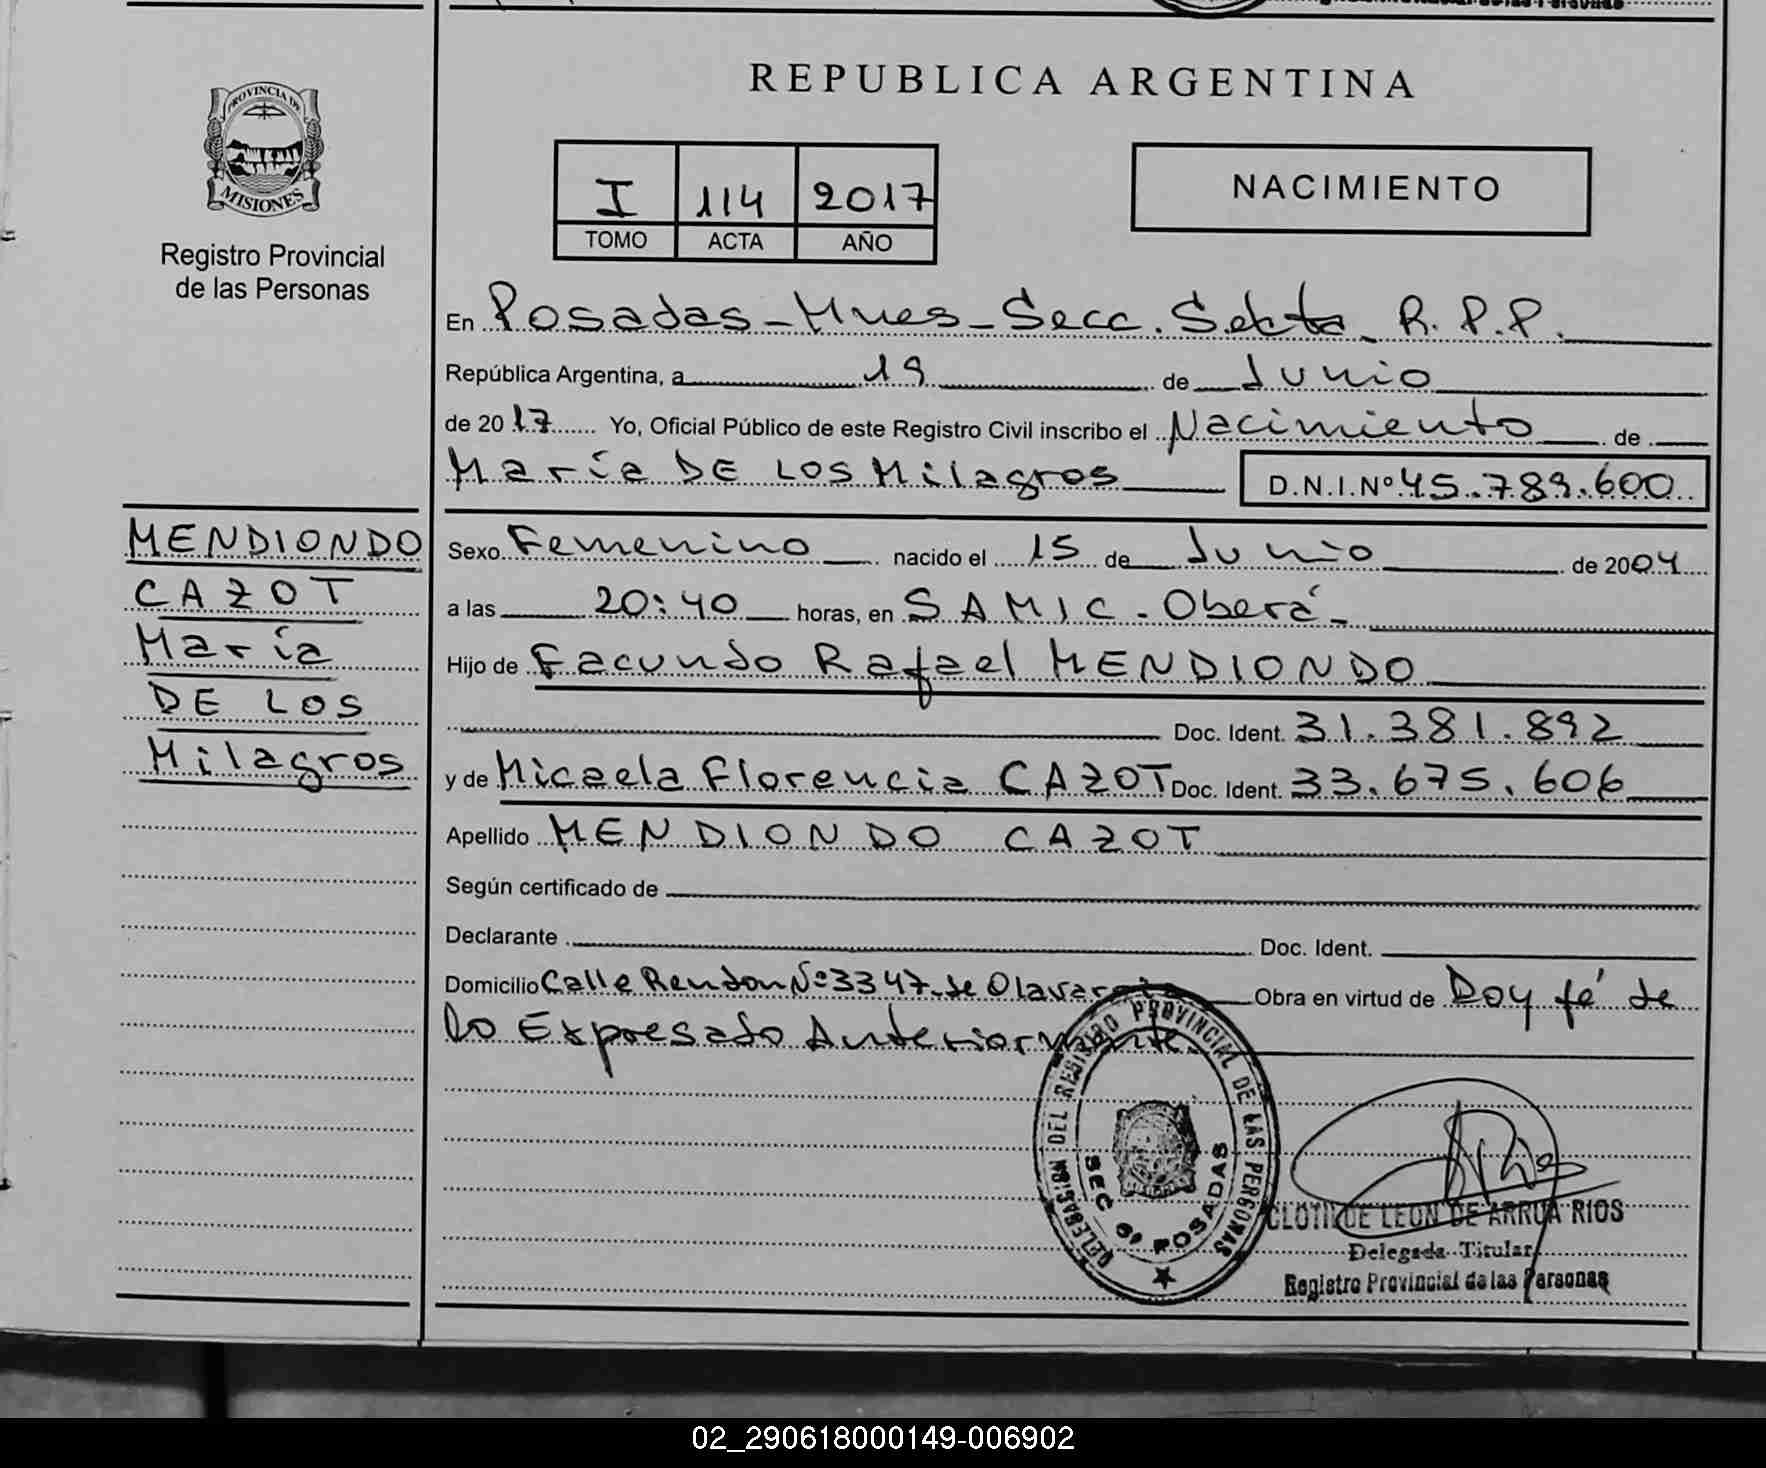 PROVINCIA DE
MISIONES
Registro Provincial
de las Personas
MENDIONDO
CAZOT
María
DE LOS
Milagros
REPUBLICA ARGENTINA
I 114 2017
TOMO ACTA AÑO
NACIMIENTO
En Posadas - Mnes - Secc. Sexta R. P. P.
República Argentina, a 19 de Junio
de 2017 Yo, Oficial Público de este Registro Civil inscribo el Nacimiento de
María DE LOS Milagros D.N.I.Nº 45.789.600
Sexo Femenino nacido el 15 de Junio de 2004
a las 20:40 horas, en SAMIC - Oberá -
Hijo de Facundo Rafael MENDIONDO
Doc. Ident. 31.381.892
y de Micaela Florencia CAZOT Doc. Ident. 33.675.606
Apellido MENDIONDO CAZOT
Según certificado de
Declarante Doc. Ident.
Domicilio Calle Rendon Nº 3347 de Obra en virtud de Doy fé de
lo Expresado Anteriormente.
DELEGACION DEL REGISTRO PROVINCIAL DE LAS PERSONAS
SEC 6ª POSADAS
CLOTILDE LEON DE ARRUA RIOS
Delegada Titular
Registro Provincial de las Personas
02_290618000149-006902